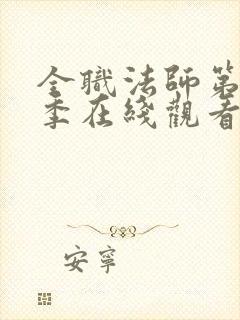 全職法師第
季在綫觀看
安寧